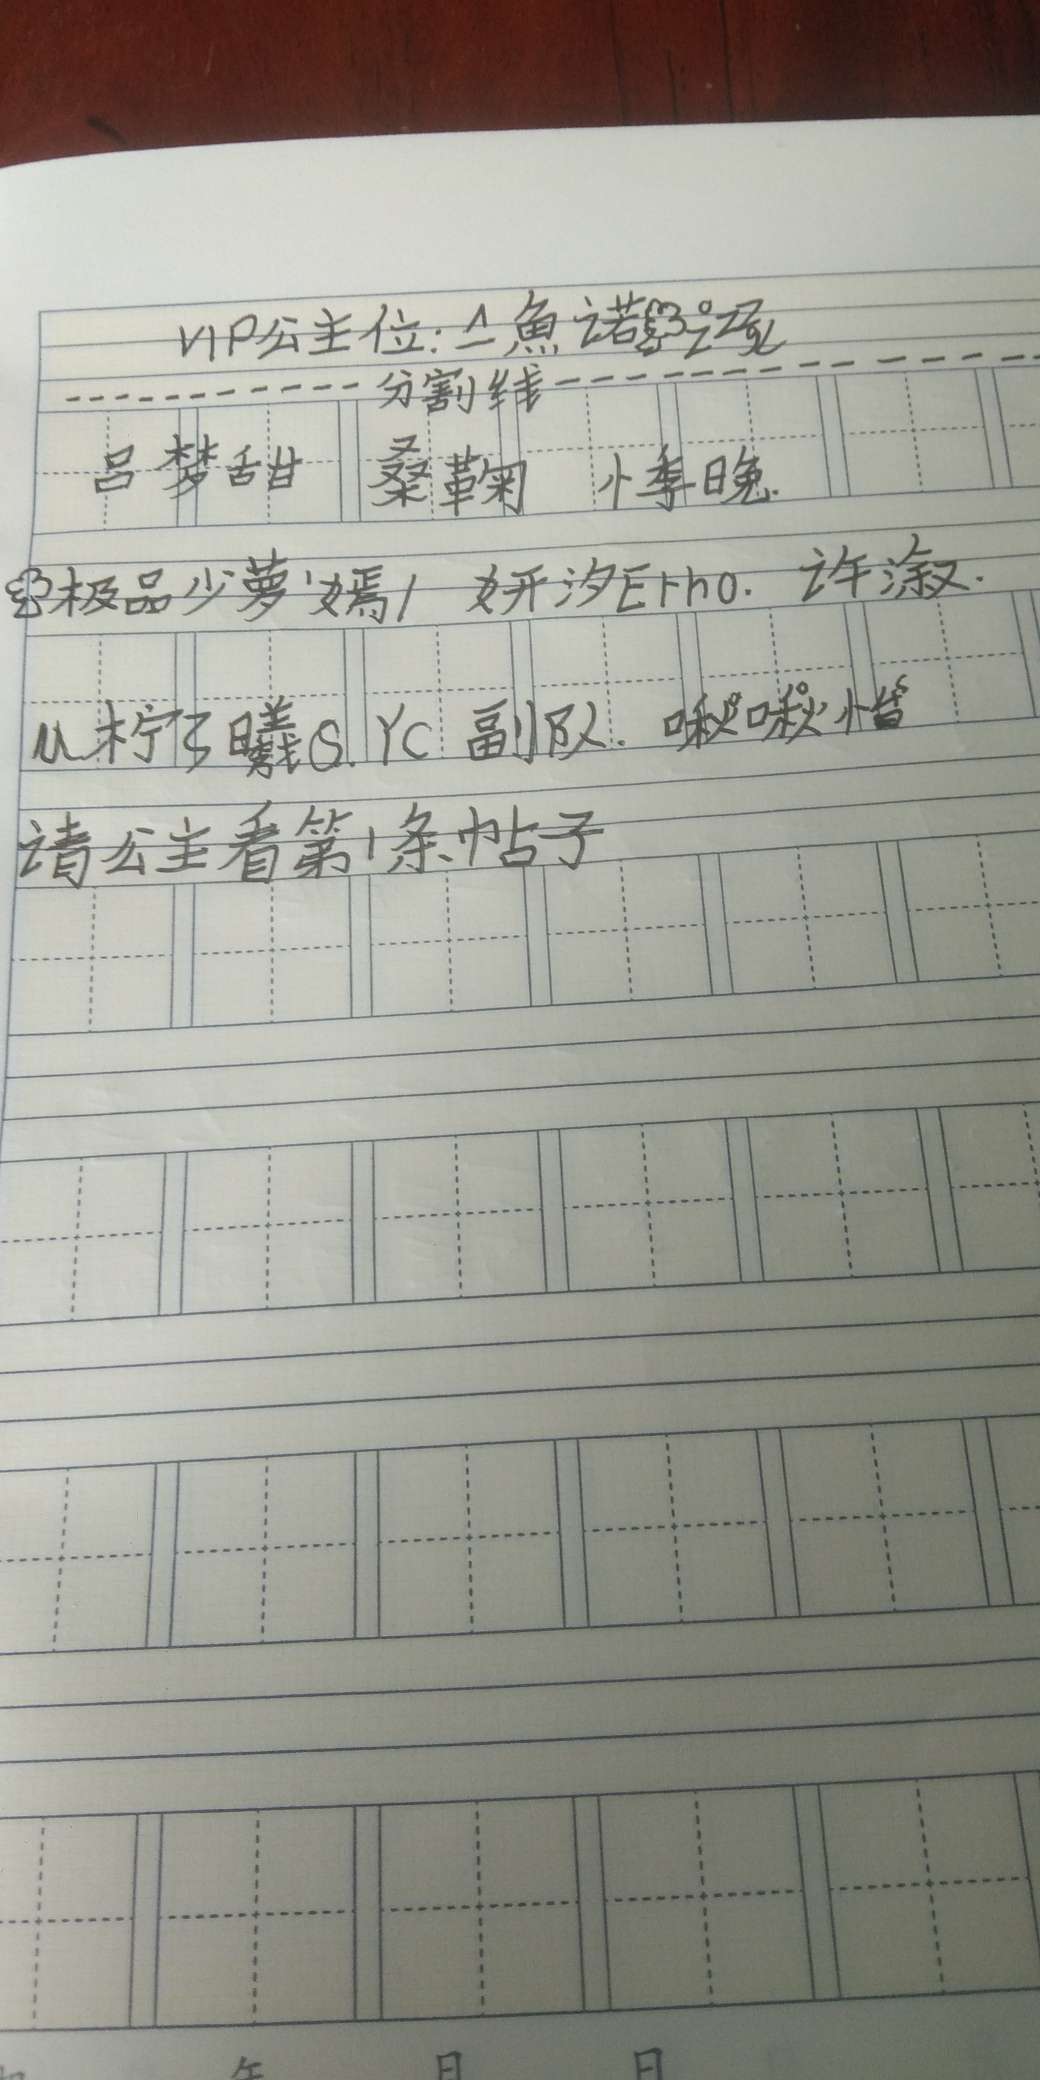 VIP公主位:亼魚诺
分割线
吕梦甜 桑鞠 小季晚.
极品少萝 嫣 妍汐Erho. 许溆.
柠 曦 Yc 副队. 啾啾 惜
请公主看第1条帖子
年 月 日